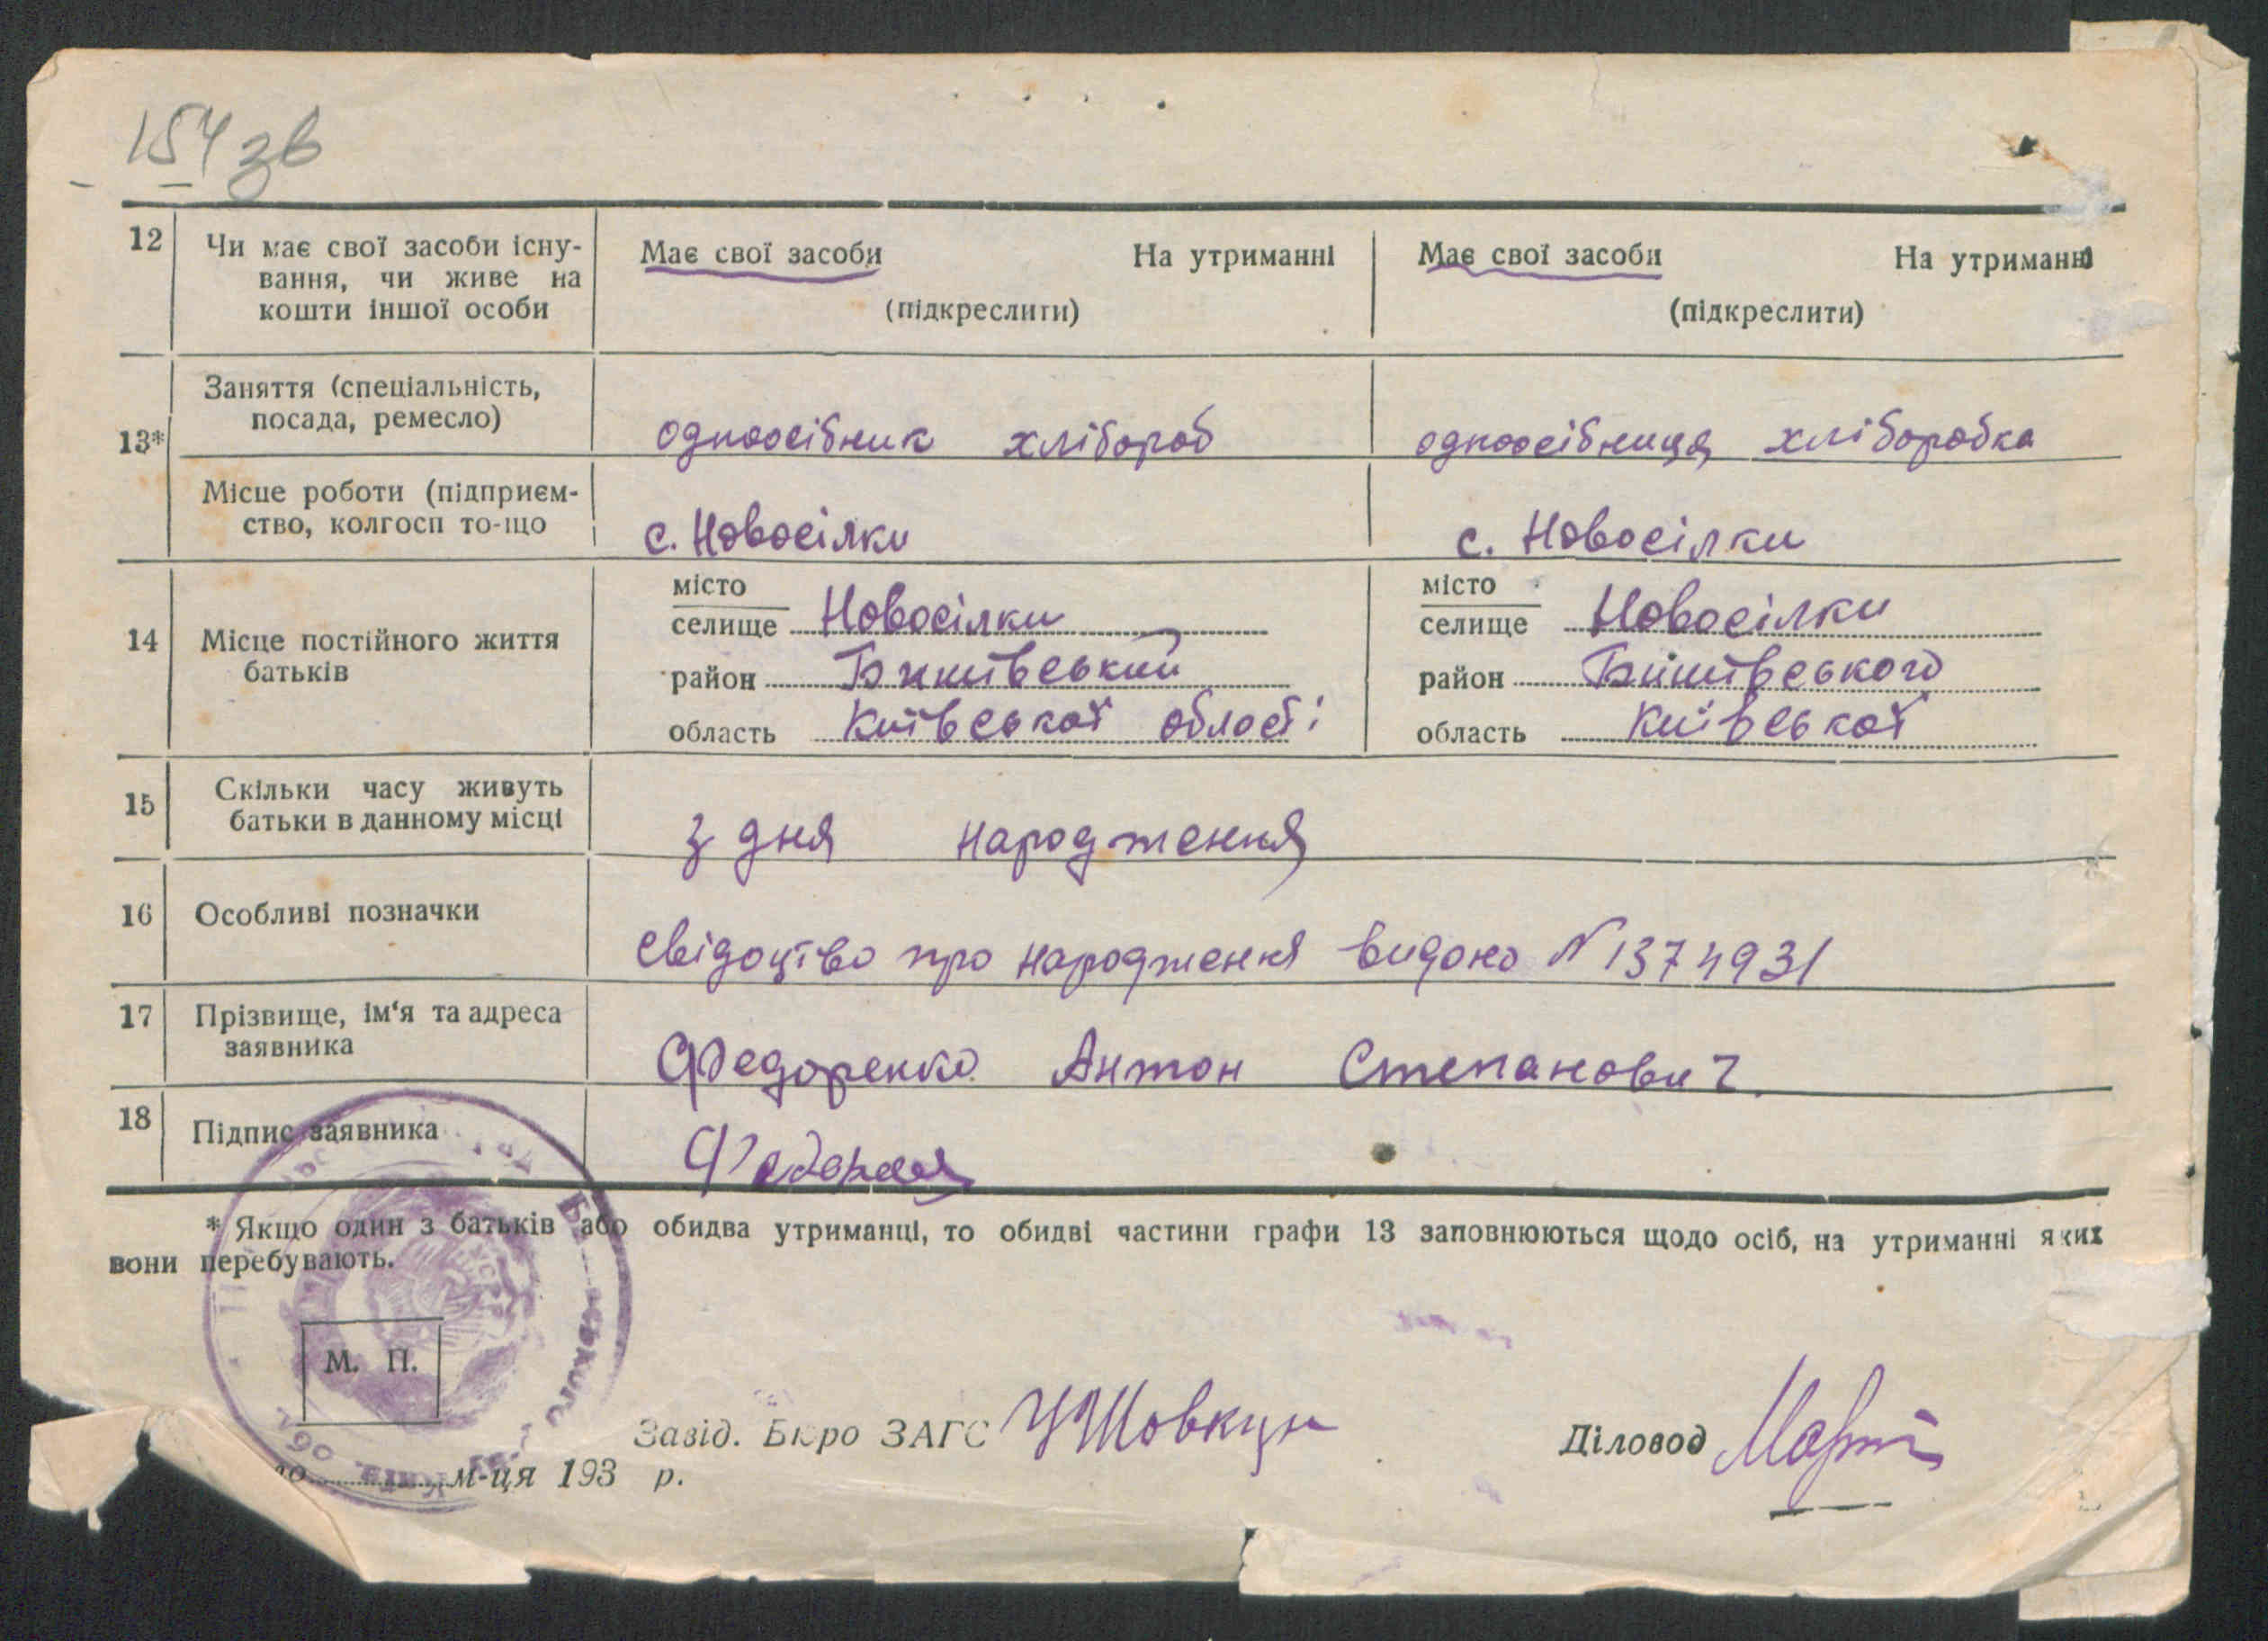 154 зв
12 Чи має свої засоби існу- Має свої засоби На утриманні Має свої засоби На утриманні
вання, чи живе на
кошти іншої особи (підкреслити) (підкреслити)
Заняття (спеціальність,
13* посада, ремесло) одноосібник хлібороб одноосібниця хліборобка
Місце роботи (підприєм-
ство, колгосп то-що с. Новосілки с. Новосілки
місто місто
селище Новосілки селище Новосілки
14 Місце постійного життя
батьків район Бишівський район Бишівського
область Київської області область Київської
15 Скільки часу живуть
батьки в данному місці з дня народження
16 Особливі позначки свідоцтво про народження видано N 1374931
17 Прізвище, ім'я та адреса
заявника Федоренко Антон Степанович
18 Підпис заявника
* Якщо один з батьків або обидва утриманці, то обидві частини графи 13 заповнюються щодо осіб, на утриманні яких
вони перебувають.
М. П.
Завід. Бюро ЗАГС Діловод
м-ця 193 р.